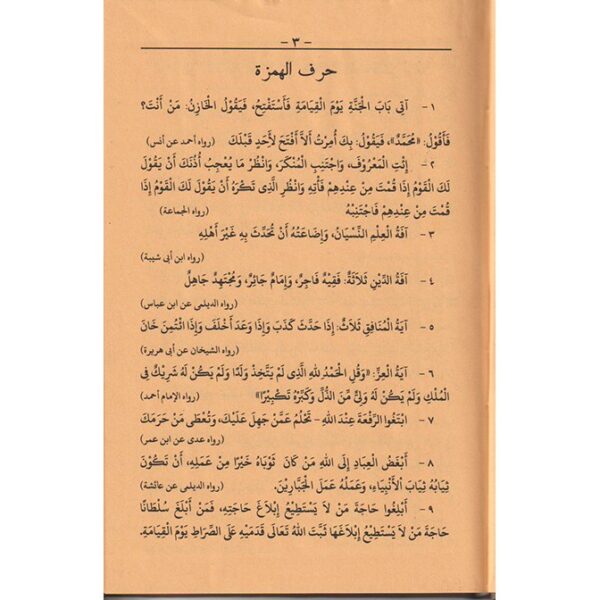 - ٣ -
حرف الهمزة
١ - آتِى بَابَ الْجَنَّةِ يَوْمَ الْقِيَامَةِ فَأَسْتَفْتِحُ، فَيَقُولُ الْخَازِنُ: مَنْ أَنْتَ؟
فَأَقُولُ: «مُحَمَّدٌ»، فَيَقُولُ: بِكَ أُمِرْتُ أَلاَّ أَفْتَحَ لأَحَدٍ قَبْلَكَ (رواه أحمد عن أنس)
٢ - إِئْتِ الْمَعْرُوفَ، وَاجْتَنِبِ الْمُنْكَرَ، وَانْظُرْ مَا يُعْجِبُ أُذُنَكَ أَنْ يَقُولَ
لَكَ الْقَوْمُ إِذَا قُمْتَ مِنْ عِنْدِهِمْ فَأْتِهِ وَانْظُرِ الَّذِى تَكْرَهُ أَنْ يَقُولَ لَكَ الْقَوْمُ إِذَا
قُمْتَ مِنْ عِنْدِهِمْ فَاجْتَنِبْهُ (رواه الجماعة)
٣ - آفَةُ الْعِلْمِ النِّسْيَانُ، وَإِضَاعَتُهُ أَنْ تُحَدِّثَ بِهِ غَيْرَ أَهْلِهِ
(رواه ابن أبى شيبة)
٤ - آفَةُ الدِّينِ ثَلاَثَةٌ: فَقِيهٌ فَاجِرٌ، وَإِمَامٌ جَائِرٌ، وَمُجْتَهِدٌ جَاهِلٌ
(رواه الديلمى عن ابن عباس)
٥ - آيَةُ الْمُنَافِقِ ثَلاَثٌ: إِذَا حَدَّثَ كَذَبَ وَإِذَا وَعَدَ أَخْلَفَ وَإِذَا ائْتُمِنَ خَانَ
(رواه الشيخان عن أبى هريرة)
٦ - آيَةُ الْعِزِّ: «وَقُلِ الْحَمْدُ لِلهِ الَّذِى لَمْ يَتَّخِذْ وَلَدًا وَلَمْ يَكُنْ لَهُ شَرِيكٌ فِى
الْمُلْكِ وَلَمْ يَكُنْ لَهُ وَلِىٌّ مِّنَ الذُّلِّ وَكَبِّرْهُ تَكْبِيرًا» (رواه الإمام أحمد)
٧ - ابْتَغُوا الرِّفْعَةَ عِنْدَ اللهِ - تَحْلُمُ عَمَّنْ جَهِلَ عَلَيْكَ، وَتُعْطِى مَنْ حَرَمَكَ
(رواه عدى عن ابن عمر)
٨ - أَبْغَضُ الْعِبَادِ إِلَى اللهِ مَنْ كَانَ ثَوْبَاهُ خَيْرًا مِنْ عَمَلِهِ، أَنْ تَكُونَ
ثِيَابُهُ ثِيَابَ الْأَنْبِيَاءِ، وَعَمَلُهُ عَمَلَ الْجَبَّارِينَ. (رواه الديلمى عن عائشة)
٩ - أَبْلِغُوا حَاجَةَ مَنْ لاَ يَسْتَطِيعُ إِبْلاَغَ حَاجَتِهِ، فَمَنْ أَبْلَغَ سُلْطَانًا
حَاجَةَ مَنْ لاَ يَسْتَطِيعُ إِبْلاَغَهَا ثَبَّتَ اللهُ تَعَالَى قَدَمَيْهِ عَلَى الصِّرَاطِ يَوْمَ الْقِيَامَةِ.